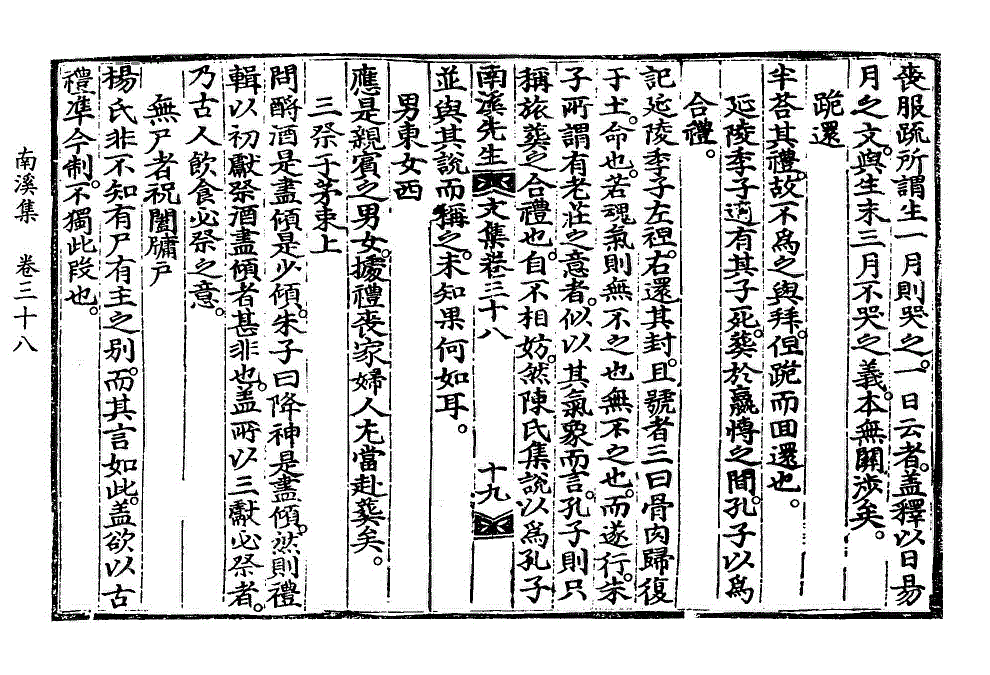 喪服疏所謂生一月則哭之。一日云者。盖釋以日易
月之文。與生未三月不哭之義。本無關涉矣。
跪還
半荅其禮。故不爲之與拜。但跪而回還也。
延陵季子適有其子死。葬於嬴愽之間。孔子以爲
合禮。
記延陵季子左袒。右還其封。且號者三曰骨肉歸復
于土。命也。若魂氣則無不之也無不之也。而遂行。朱
子所謂有老莊之意者。似以其氣象而言。孔子則只
稱旅葬之合禮也。自不相妨。然陳氏集說以爲孔子
南溪先生文集卷三十八 十九
並與其說而稱之。未知果何如耳。
男東女西
應是親賓之男女。據禮喪家婦人尢當赴葬矣。
三祭于茅束上
問酹酒是盡傾是少傾。朱子曰降神是盡傾。然則禮
輯以初獻祭酒盡傾者甚非也。盖所以三獻必祭者。
乃古人飮食必祭之意。
無尸者祝闔牖戶
楊氏非不知有尸有主之别。而其言如此。盖欲以古
禮準今制。不獨此段也。
南溪集 卷三十八